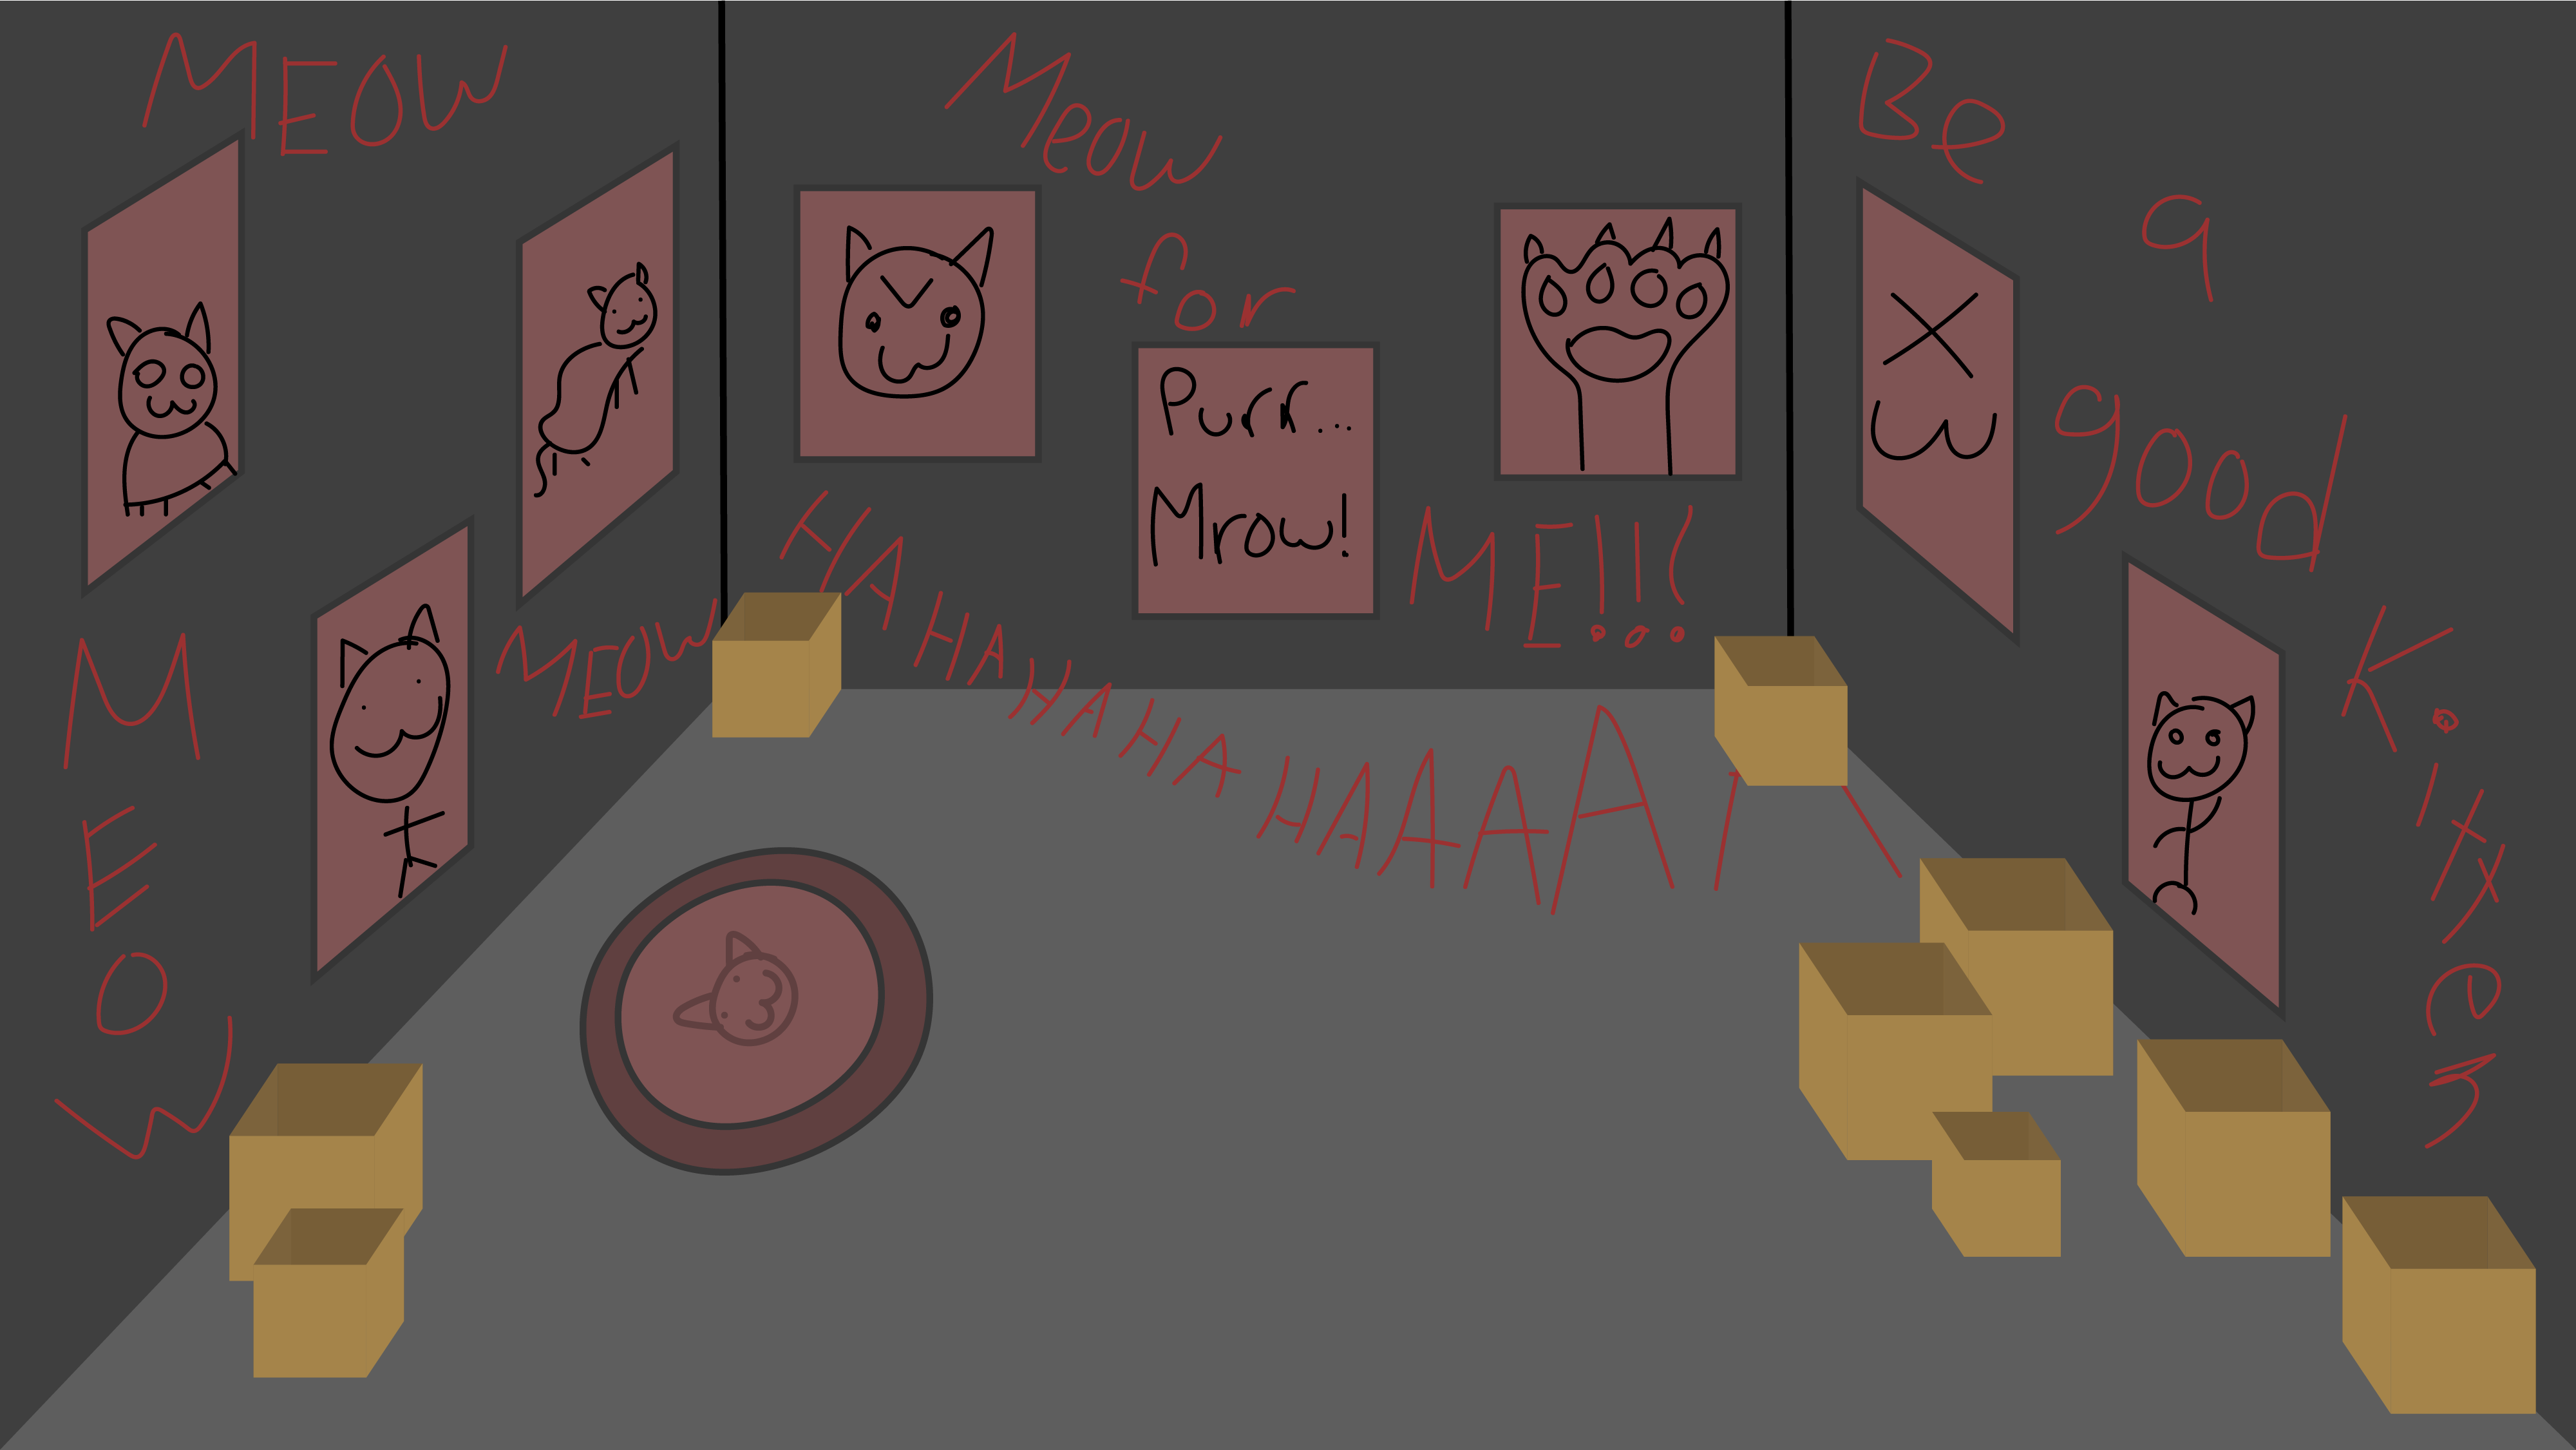 MEOW
MEOW
MEOW
Meow
for
ME!!!
Purr...
Mraw!
HAHAHAHAHAAAAA
Be
a
good
Kitten